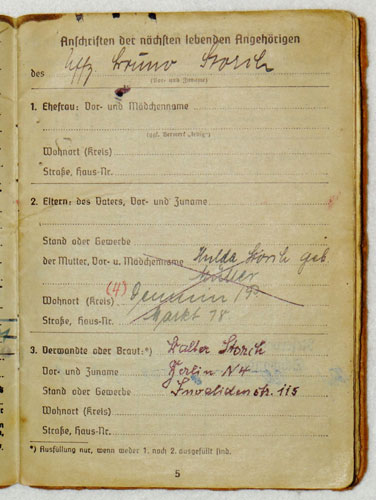 Anschriften der nächsten lebenden Angehörigen
des Uffz Bruno Storch
(Vor- und Zuname)
1. Ehefrau: Vor- und Mädchenname
(ggf. Vermerk „ledig“)
Wohnort (Kreis)
Straße, Haus-Nr.
2. Eltern: des Vaters, Vor- und Zuname
Stand oder Gewerbe
der Mutter, Vor- u. Mädchenname Hulda Storch geb
Müller
Wohnort (Kreis) (4) Demmin
Straße, Haus-Nr. Markt 18
3. Verwandte oder Braut:*) Walter Storch
Vor- und Zuname Berlin N4
Stand oder Gewerbe Invalidenstr. 115
Wohnort (Kreis)
Straße, Haus-Nr.
*) Ausfüllung nur, wenn weder 1. noch 2. ausgefüllt sind.
5